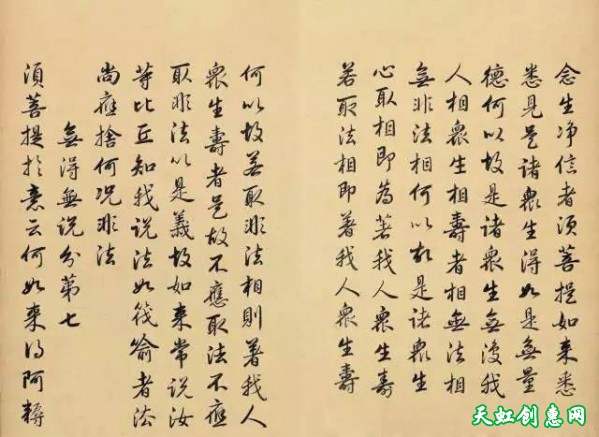 念生净信者須菩提如来悉
悉見是諸衆生得如是無量
德何以故是諸衆生無復我
人相衆生相壽者相無法相
無非法相何以故是諸衆生
心取相即為著我人衆生壽
若取法相即著我人衆生壽
何以故若取非法相則著我人
衆生壽者是故不應取法不應
取非法以是義故如来常説汝
等比丘知我説法如筏喻者法
尚應捨何況非法
無得無説分第七
須菩提於意云何如来得阿耨
天虹创惠网